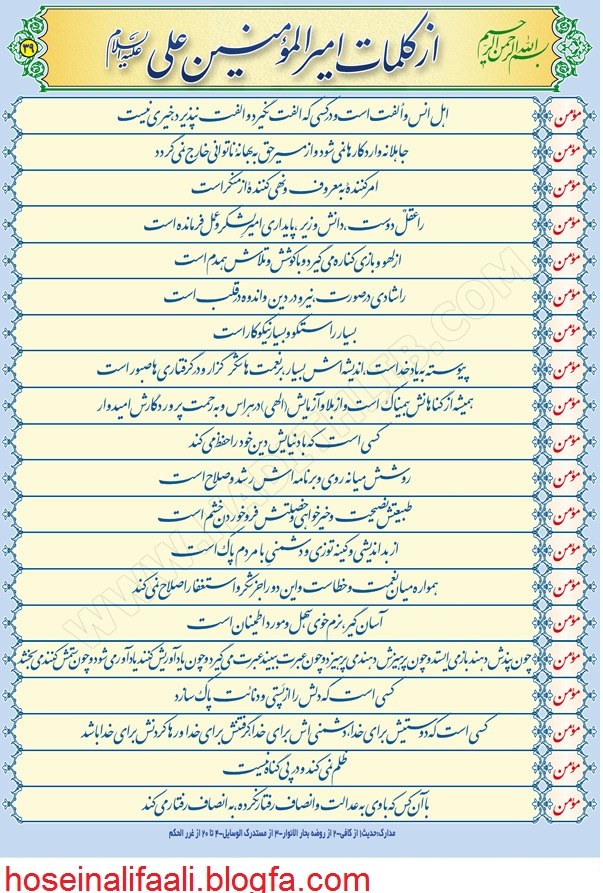 بسم الله الرحمن الرحیم
از کلمات امیرالمؤمنین علی علیه السلام
۳۹
مؤمن اهل انس و اُلفت است و در کسی که الفت نگیرد و الفت نپذیرد، خیری نیست
مؤمن جاهلانه وارد کارها نمی شود و از مسیر حق به بهانهٔ ناتوانی خارج نمی گردد
مؤمن امر کنندهٔ به معروف و نهی کنندهٔ از منکر است
مؤمن را عقل دوست، دانش وزیر، پایداری امیر لشکر و عمل فرمانده است
مؤمن از لهو و بازی کناره می گیرد و با کوشش و تلاش همدم است
مؤمن را شادی در صورت، نیرو در دین و اندوه در قلب است
مؤمن بسیار راستگو و بسیار نیکوکار است
مؤمن پیوسته به یاد خداست، اندیشه اش بسیار، بر نعمت ها شکر گزار و در گرفتاری ها صبور است
مؤمن همیشه از گناهانش بیمناک است و از بلا و آزمایش (الهی) در هراس و به رحمت پروردگارش امیدوار
مؤمن کسی است که با دنیایش دین خود را حفظ می کند
مؤمن روشش میانه روی و برنامه اش رشد و صلاح است
مؤمن طبیعتش نصیحت و خیرخواهی و خصلتش فرو خوردن خشم است
مؤمن از بداندیشی و کینه توزی و دشمنی با مردم پاک است
مؤمن همواره میان نعمت و خطاست و این دو را جز شکر و استغفار اصلاح نمی کند
مؤمن آسان گیر، نرم خوی، سهل و مورد اطمینان است
مؤمن چون پندش دهند باز می ایستد و چون پرهیزش دهند می پرهیزد و چون عبرت ببیند عبرت می گیرد و چون یادآوریش کنند یادآور می شود و چون ستمش کنند می بخشد
مؤمن کسی است که دلش را از پستی و دنائت پاک سازد
مؤمن کسی است که دوستیش برای خدا، دشمنی اش برای خدا، گرفتنش برای خدا و رها کردنش برای خدا باشد
مؤمن ظلم نمی کند و در پی گناه نیست
مؤمن با آن کس که با وی به عدالت و انصاف رفتار نکرده، به انصاف رفتار می کند
مدارک: حدیث ۱ از کافی-۲ از روضه بحار الانوار-۳ از مستدرک الوسایل-۴ تا ۲۰ از غرر الحکم
hoseinalifaali.blogfa.com